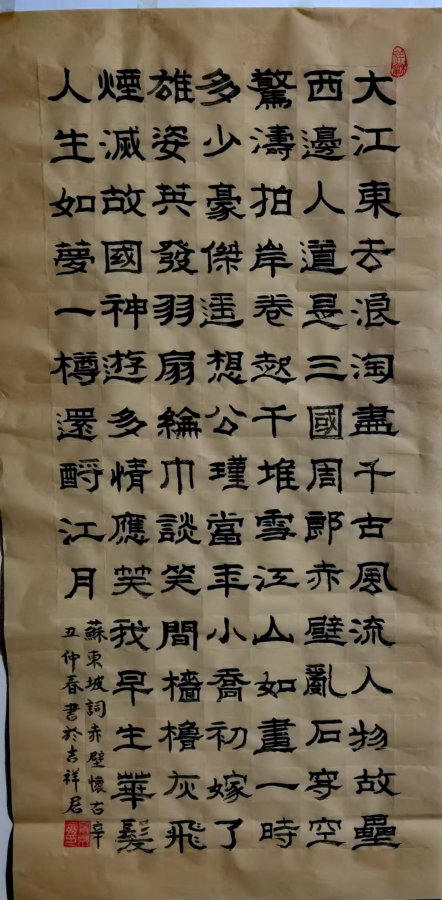 大江東去浪淘盡千古風流人物故壘
西邊人道是三國周郎赤壁亂石穿空
驚濤拍岸卷起千堆雪江山如畫一時
多少豪傑遥想公瑾當年小喬初嫁了
雄姿英發羽扇綸巾談笑間檣櫓灰飛
煙滅故國神遊多情應笑我早生華髮
人生如夢一樽還酹江月
蘇東坡詞赤壁懷古辛
丑仲春書於吉祥居